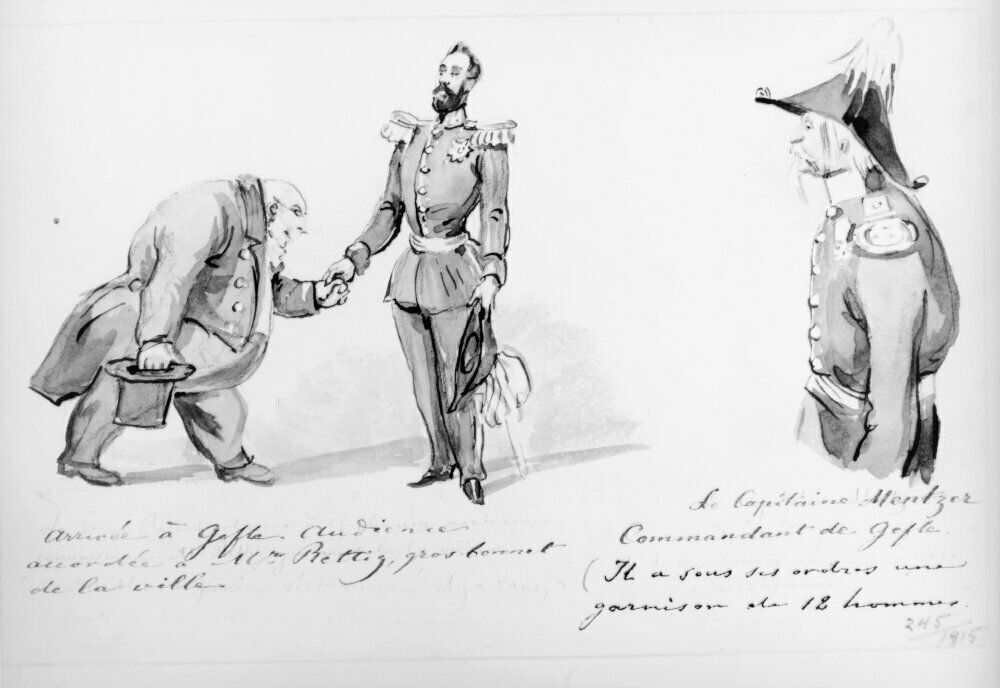 Arrivée à Gefle. Audience
accordée à Mr. Rettig, gros bonnet
de la ville.
Le Capitaine Mentzer
Commandant de Gefle.
(Il a sous ses ordres une
garnison de 12 hommes.
245
1915